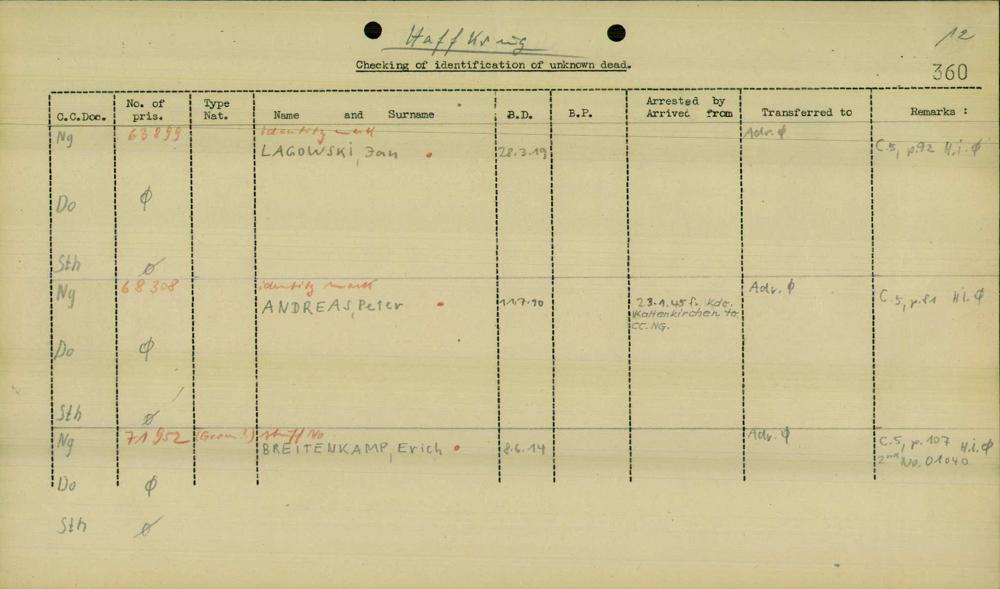 Haffkrug
12
Checking of identification of unknown dead.
360
C.C.Doc. No. of pris. Type Nat. Name and Surname B.D. B.P. Arrested by Arrived from Transferred to Remarks :
Ng 63899 identity mark Adr. ϕ
LAGOWSKI, Jan 28.3.19 C.5, p.92 H.i. ϕ
Do ϕ
Sth ϕ
Ng 68308 identity mark Adr. ϕ
ANDREAS, Peter 11.7.90 23.1.45 fr. Kdo. C.5, p.81 H.i. ϕ
Kaltenkirchen to
CC. NG.
Do ϕ
Sth ϕ
Ng 71952 (Germ.!) stuff No Adr. ϕ
BREITENKAMP, Erich 8.6.14 C.5, p.107 H.i. ϕ
2nd No. 01040
Do ϕ
Sth ϕ